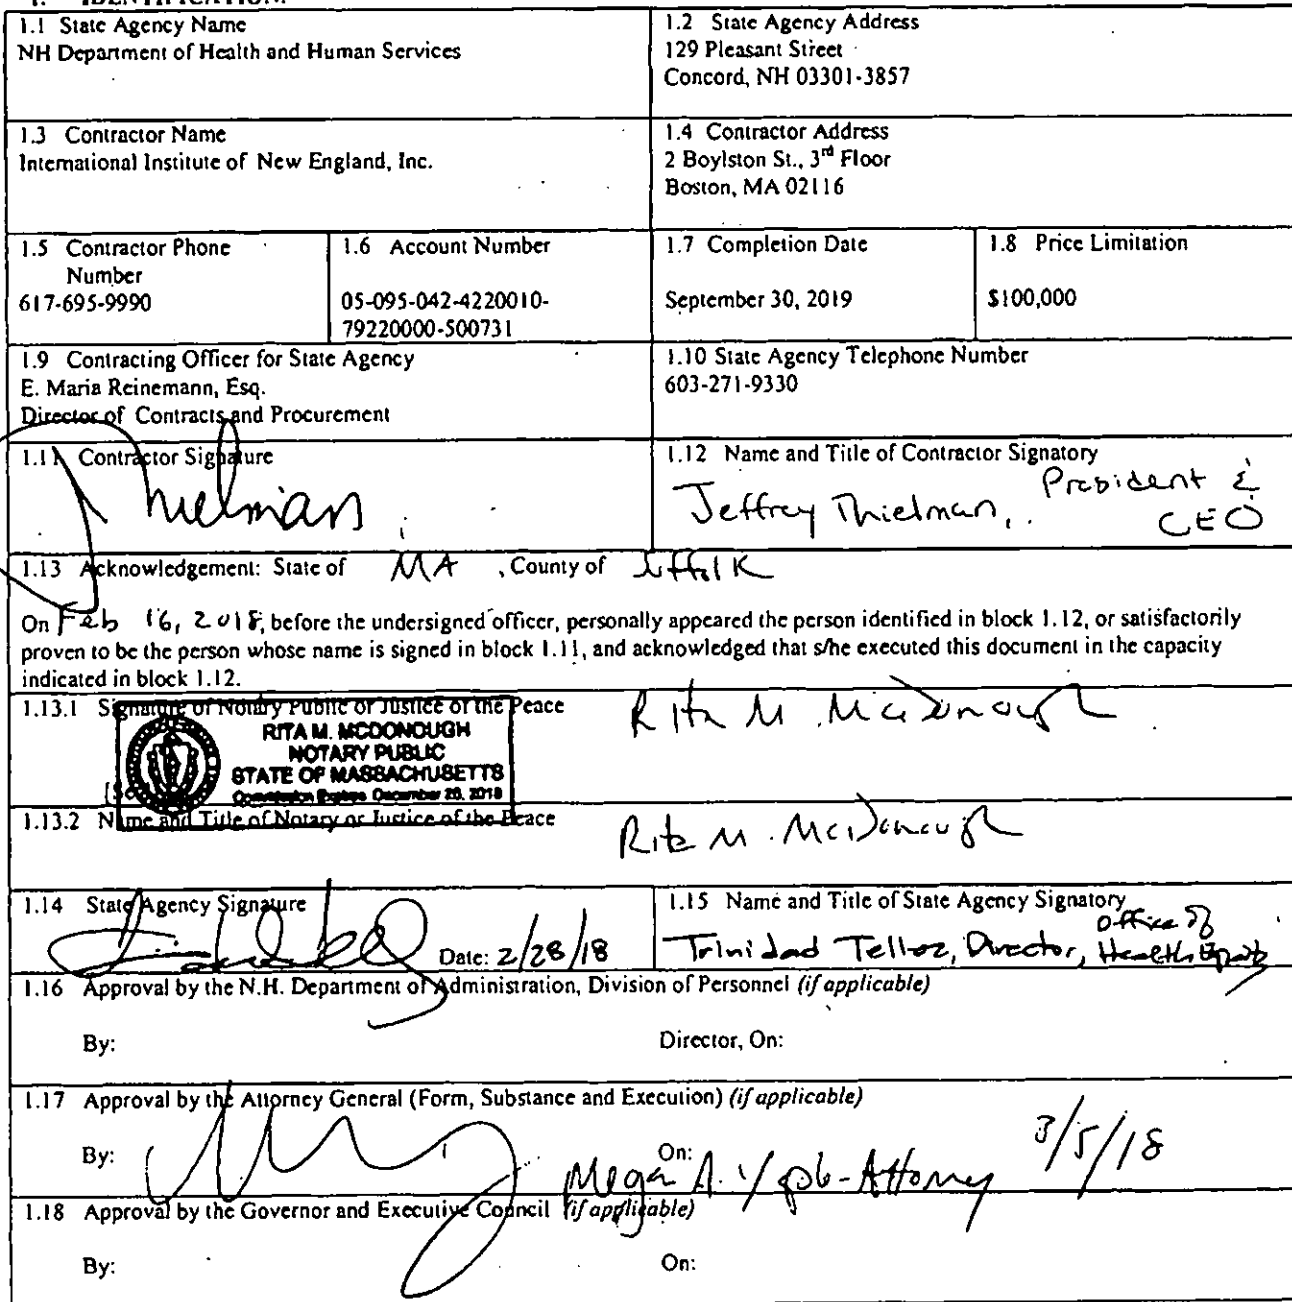 1. IDENTIFICATION.
1.1 State Agency Name
NH Department of Health and Human Services
1.2 State Agency Address
129 Pleasant Street
Concord, NH 03301-3857
1.3 Contractor Name
International Institute of New England, Inc.
1.4 Contractor Address
2 Boylston St., 3rd Floor
Boston, MA 02116
1.5 Contractor Phone
Number
617-695-9990
1.6 Account Number
05-095-042-4220010-
79220000-500731
1.7 Completion Date
September 30, 2019
1.8 Price Limitation
$100,000
1.9 Contracting Officer for State Agency
E. Maria Reinemann, Esq.
Director of Contracts and Procurement
1.10 State Agency Telephone Number
603-271-9330
1.11 Contractor Signature
Thielman
1.12 Name and Title of Contractor Signatory
Jeffrey Thielman, President &
CEO
1.13 Acknowledgement: State of MA , County of Suffolk
On Feb 16, 2018, before the undersigned officer, personally appeared the person identified in block 1.12, or satisfactorily
proven to be the person whose name is signed in block 1.11, and acknowledged that s/he executed this document in the capacity
indicated in block 1.12.
1.13.1 Signature of Notary Public or Justice of the Peace
Rita M. McDonough
RITA M. MCDONOUGH
NOTARY PUBLIC
STATE OF MASSACHUSETTS
Commission Expires December 28, 2018
1.13.2 Name and Title of Notary or Justice of the Peace
Rita M. McDonough
1.14 State Agency Signature
Date: 2/28/18
1.15 Name and Title of State Agency Signatory
Trinidad Tellez, Director, Office of
Health Equity
1.16 Approval by the N.H. Department of Administration, Division of Personnel (if applicable)
By:
Director, On:
1.17 Approval by the Attorney General (Form, Substance and Execution) (if applicable)
By:
On: 3/5/18
Megan A. - Attorney
1.18 Approval by the Governor and Executive Council (if applicable)
By:
On: